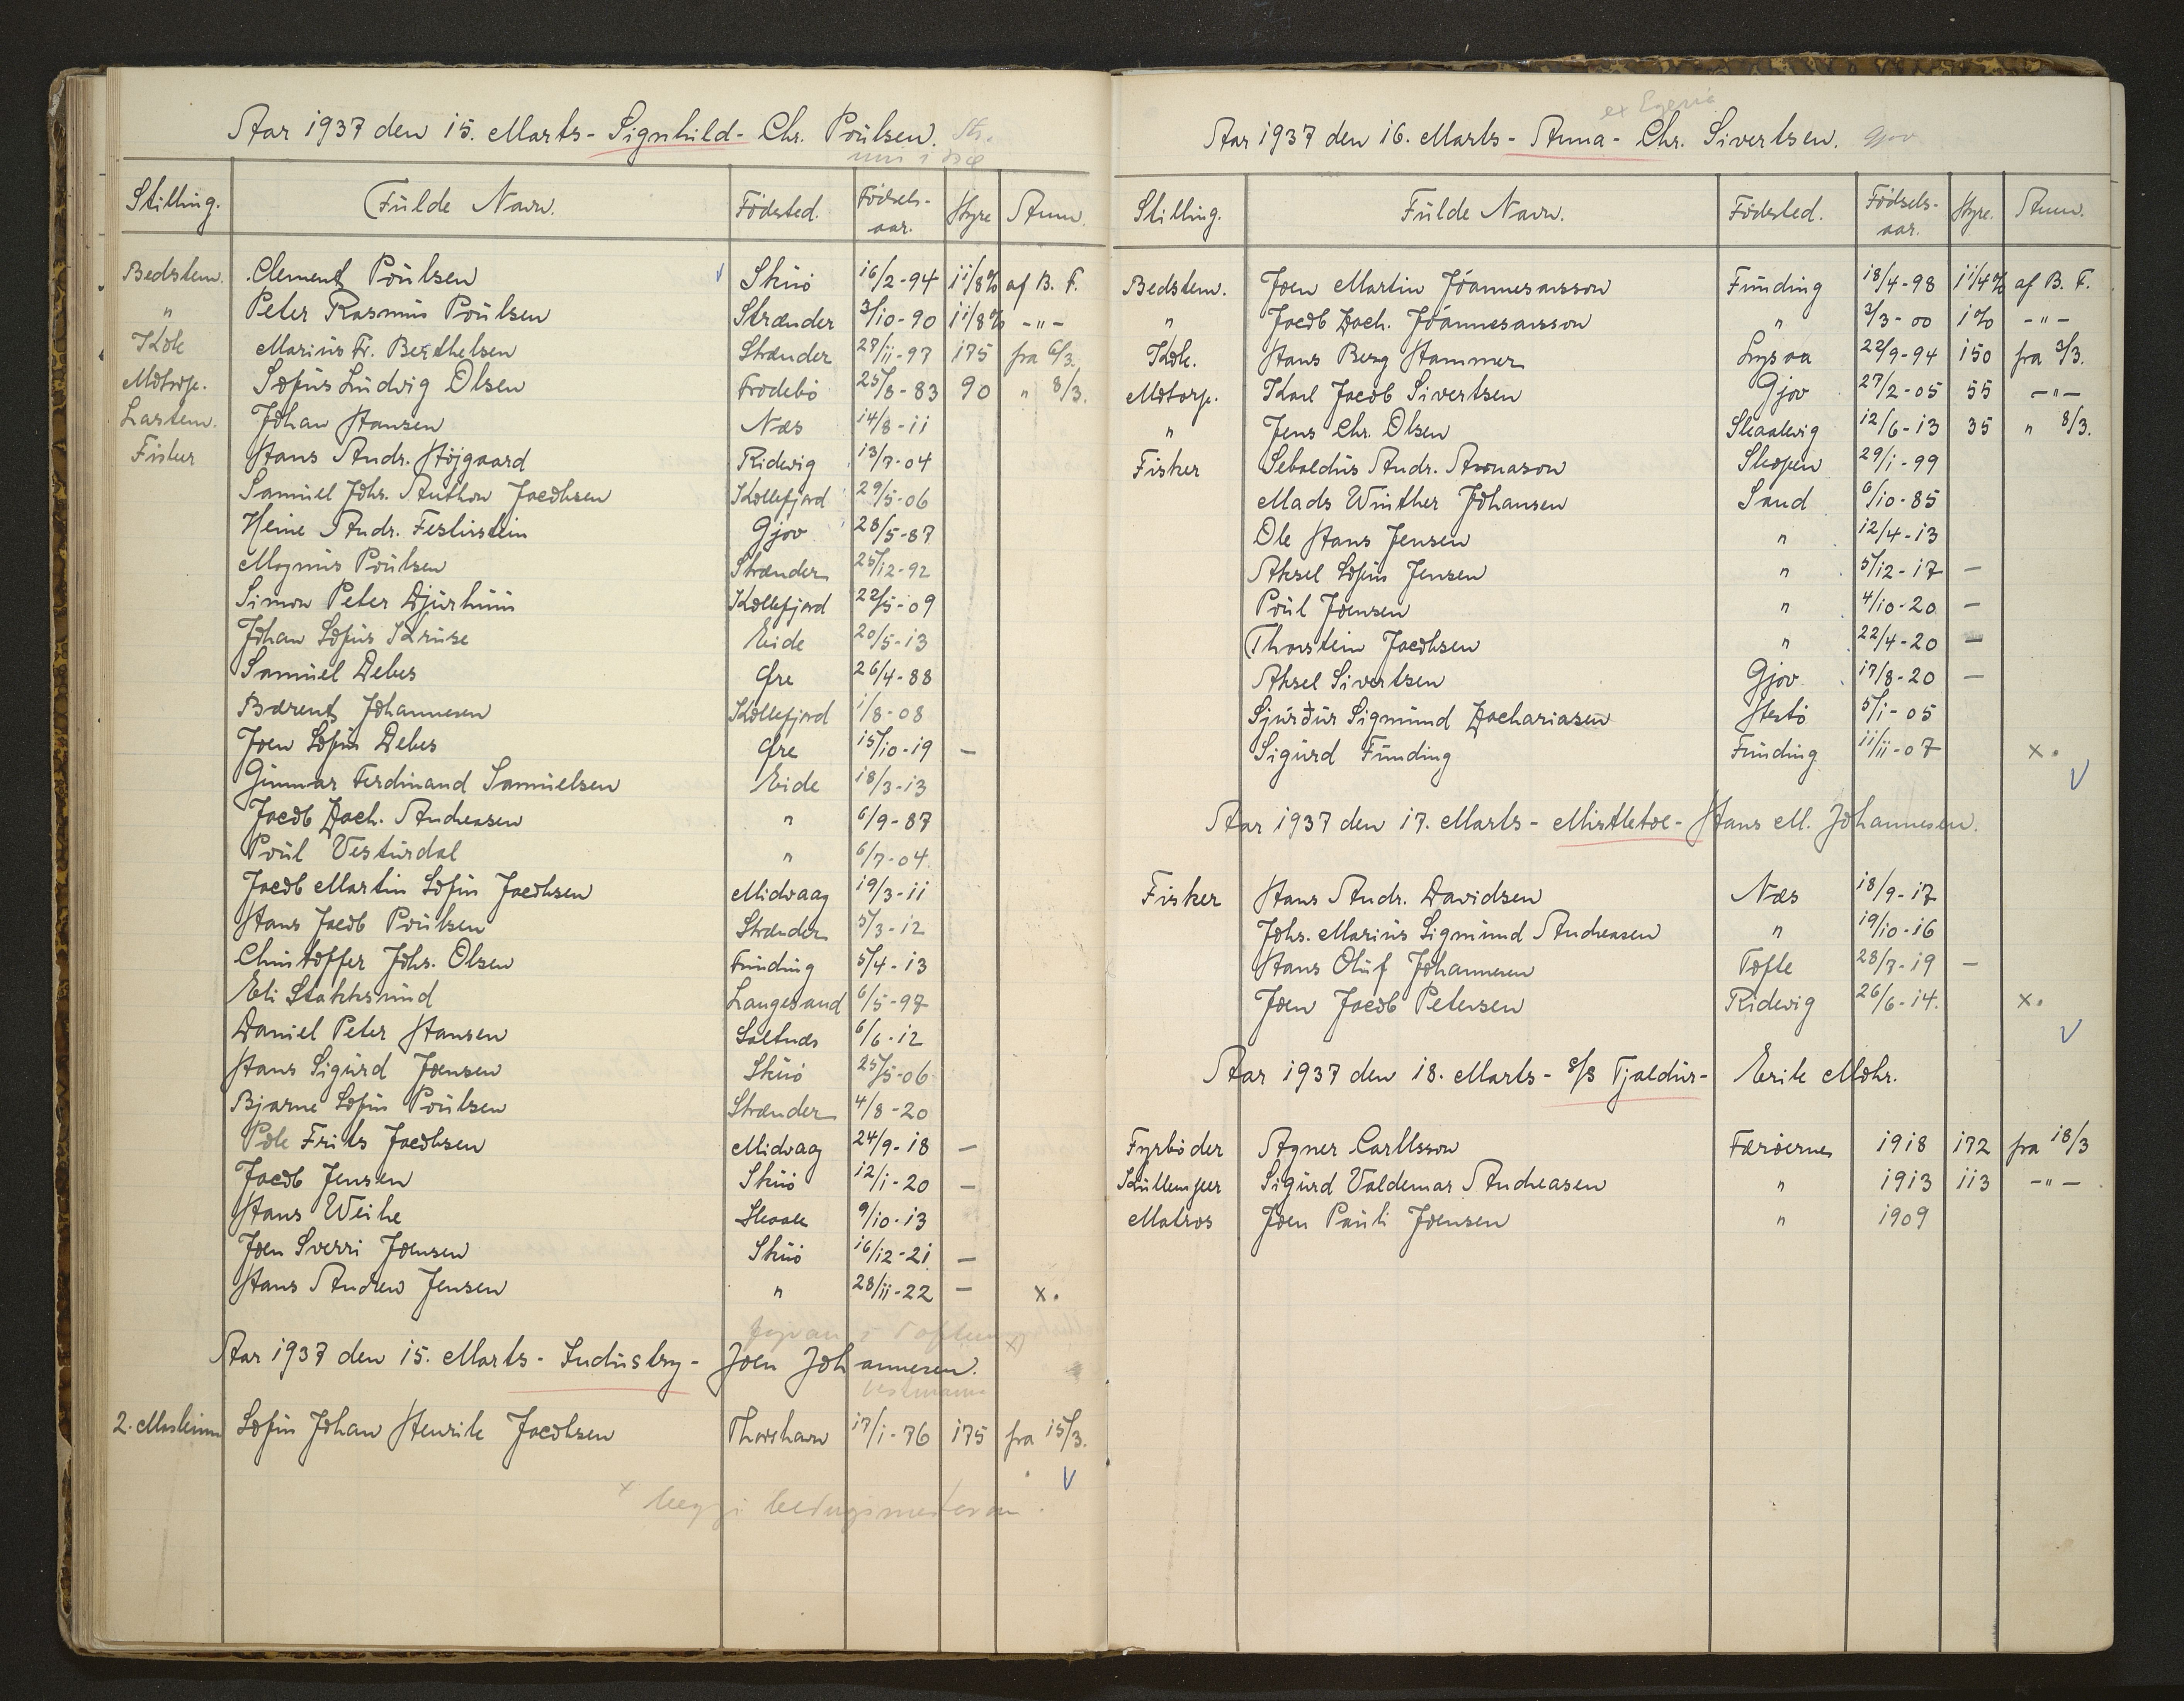 Aar 1937 den 15. Marts - Signhild - Chr. Poulsen. Str.
Stilling. Fulde Navn. Födested. Födsels-aar. Hyre Anm.
Bedstem. Clement Poulsen Skuö 16/2-94 11/8% af B. F.
" Peter Rasmus Poulsen Strænder 3/10-90 11/8% -"-
Kok Marius Fr. Berthelsen Strænder 27/11-97 175 fra 6/3.
Motorp. Sofus Ludvig Olsen Frodebö 25/8-83 90 " 8/3.
Lastem. Johan Hansen Næs 14/8-11
Fisker Hans Andr. Höjgaard Ridevig 13/7-04
Samuel Johs. Anthon Jacobsen Kollefjord 29/5-06
Heine Andr. Festirstein Gjov 28/5-87
Magnus Poulsen Strænder 25/12-92
Simon Peter Djurhuus Kollefjord 22/5-09
Johan Sofus Kruse Eide 20/5-13
Samuel Debes Øre 26/4-88
Bærent Johannesen Kollefjord 1/8-08
Joen Sofus Debes Øre 15/10-19 —
Gunnar Ferdinand Samuelsen Eide 18/3-13
Jacob Zach. Andreasen " 6/9-87
Poul Vesturdal " 6/7-04
Jacob Martin Sofus Jacobsen Midvaag 19/3-11
Hans Jacob Poulsen Strænder 5/3-12
Christoffer Johs. Olsen Funding 5/4-13
Eli Stakksund Langesand 6/5-97
Daniel Peter Hansen Saltnæs 6/6-12
Hans Sigurd Joensen Skuö 25/5-06
Bjarne Sofus Poulsen Strænder 4/8-20
Pole Frits Jacobsen Midvaag 24/9-18 —
Jacob Jensen Skuö 12/1-20 —
Hans Weihe Skaale 9/10-13
Joen Sverri Joensen Skuö 16/12-21 —
Hans Andrew Jensen " 28/11-22 — x.
Aar 1937 den 15. Marts - Industry - Joen Johannesen.
Vestmanna
2. Maskinm Sofus Johan Henrik Jacobsen Thorshavn 17/1-76 175 fra 15/3.
ex Egeria
Aar 1937 den 16. Marts - Anna - Chr. Sivertsen. Gjov
Stilling. Fulde Navn. Födested. Födsels-aar. Hyre. Anm.
Bedstem. Joen Martin Jóannesarsson Funding 18/4-98 11/4% af B. F.
" Jacob Zach. Jóannesarsson " 3/3-00 1% -"-
Kok. Hans Berg Hammer Lysaa 22/9-94 150 fra 3/3.
Motorp. Karl Jacob Sivertsen Gjov 27/2-05 55 -"-
" Jens Chr. Olsen Skaalevig 12/6-13 35 " 8/3.
Fisker Sebaldus Andr. Aronason Skopen 29/1-99
Mads Winther Johansen Sand 6/10-85
Ole Hans Jensen " 12/4-13
Aksel Sofus Jensen " 5/12-17 —
Poul Joensen " 4/10-20 —
Thorstein Jacobsen " 22/4-20 —
Aksel Sivertsen Gjov 17/8-20 —
Sjúrður Sigmund Zachariasen Hestö 5/1-05
Sigurd Funding Funding 11/11-07 x.
Aar 1937 den 17. Marts - Mistletoe - Hans M. Johannesen.
Fisker Hans Andr. Davidsen Næs 18/9-17
Johs. Marius Sigmund Andreasen " 19/10-16
Hans Oluf Johannesen Tofte 28/7-19 —
Joen Jacob Petersen Ridevig 26/6-14. x.
Aar 1937 den 18. Marts - S/S Tjaldur - Erik Mohr.
Fyrböder Agner Carlsson Færöerne 1918 172 fra 18/3
Kullemper Sigurd Valdemar Andreasen " 1913 113 -"-
Matros Joen Pauli Joensen " 1909